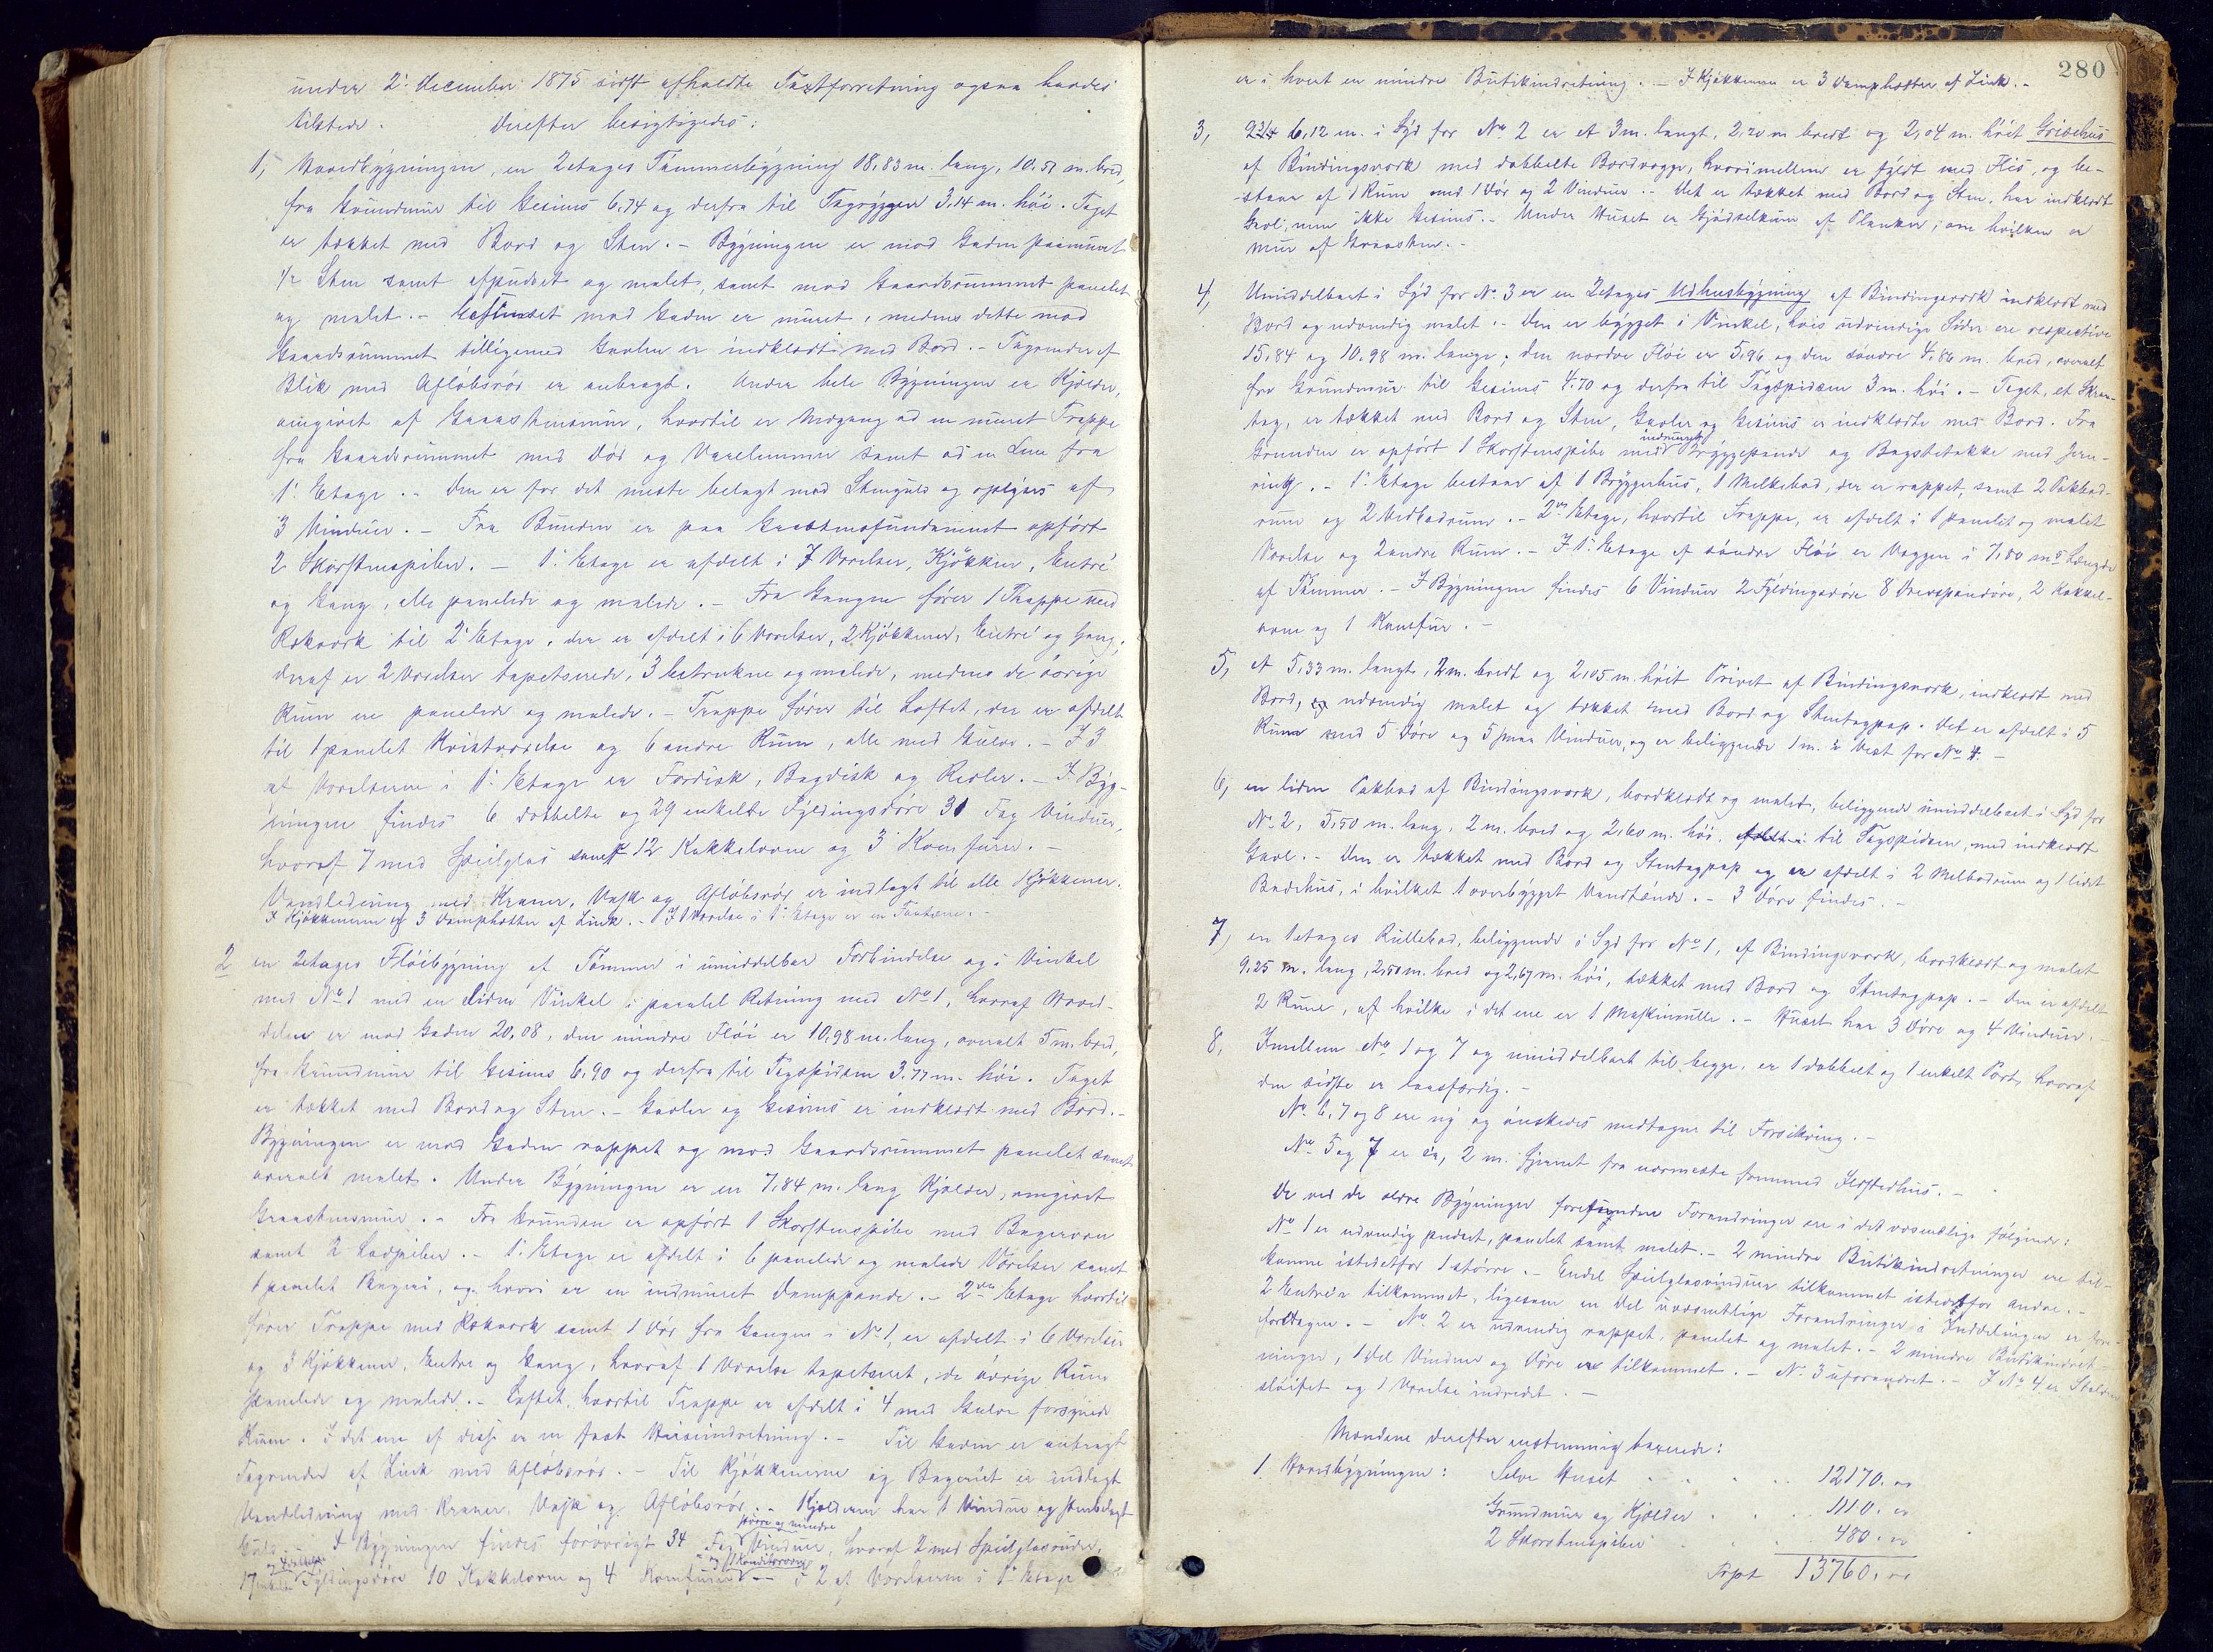 under 2: December 1875 sidst afholdte Taxtforretning ogsaa havdes
tilstede. Derefter besigtigedes:
1, Hovedbygningen, en 2etages Tømmerbygning 18,83 m. lang, 10,51 m. bred,
fra Grundmur til Gesims 6,74 og derfra til Tagryggen 3,14 m. høi. Taget
er tækket med Bord og Sten. - Bygningen er mod Gaden paamuret
1/2 Sten samt afpudset og malet, samt mod Gaardsrummet panelet
og malet. - mod Gaden er muret, medens dette mod
Gaardsrummet tilligemed Gavlen er indklædt med Bord. - Tagrender af
Blik med Afløbsrør er anbragt. Under hele Bygningen er Kjælder,
omgivet af Graastensmur, hvortil er Nedgang ad en muret Trappe
fra Gaardsrummet med Dør og Varelemmer samt ad en Lem fra
1: Etage. - Den er for det meste belagt med Stengulv og oplyses af
3 Vinduer. - Fra Bunden er paa Graastensfundament opført
2 Skorstenspiber. - 1: Etage er afdelt i 7 Værelser, Kjøkken, Entré
og Gang, alle panelede og malede. - Fra Gangen fører 1 Trappe med
Rækværk til 2: Etage, der er afdelt i 6 Værelser, 2 Kjøkkener, Entré og Gang;
deraf er 2 Værelser tapetserede, 3 betrukne og malede, medens de øvrige
Rum ere panelede og malede. - Trappe fører til Loftet, der er afdelt
til 1 panelet Kvistværelse og 6 andre Rum, alle med Gulve. - I 3
af Værelserne i 1: Etage er Fordisk, Bagdisk og Reoler. - I Byg-
ningen findes 6 dobbelte og 29 enkelte Fyldingsdøre 31 Fag Vinduer,
hvoraf 7 med Speilglas samt 12 Kakkelovne og 3 Komfurer. -
Vandledning med Kraner, Vask og Afløbsrør er indlagt til alle Kjøkkener.
I Kjøkkenerne er 3 Damphætter af Zink. - I 1 Værelse i 1: Etage er en Fontæne. -
2 en 2etages Fløibygning af Tømmer i umiddelbar Forbindelse og i Vinkel
med No 1 med en liden Vinkel i paralel Retning med No 1, hvoraf Hoved-
delen er mod Gaden 20,08, den mindre Fløi er 10,98 m. lang, overalt 5 m. bred,
fra Grundmur til Gesims 6,90 og derfra til Tagspidsen 3,77 m. høi. Taget
er tækket med Bord og Sten. - Gavler og Gesims er indklædt med Bord. -
Bygningen er mod Gaden rappet og mod Gaardsrummet panelet samt
overalt malet. Under Bygningen er en 7,84 m. lang Kjælder, omgivet
Graastensmur. - Fra Grunden er opført 1 Skorstenspibe med Bagerovn
samt 2 Ladpiber. - 1: Etage er afdelt i 6 panelede og malede Værelser samt
1 panelet Bageri, og hvori er en indmuret Damppande. - 2den Etage hvortil
fører Trappe med Rækværk samt 1 Dør fra Gangen i No 1, er afdelt i 6 Værelser
og Kjøkkener, Entre og Gang, hvoraf 1 Værelse tapetseret, de øvrige Rum
panelede og malede. - Loftet, hvortil Trappe er afdelt i 4 med Gulve forsynede
Rum. I det ene af disse er en fast Heiseindretning. - Til Gaden er anbragt
Tagrender af Zink med Afløbsrør. - Til Kjøkkenerne og Bageriet er indlagt
Vandledning med Kraner, Vask og Afløbsrør. - Kjælderen har 1 Vindue og stenbelagt
Gulv. - I Bygningen findes forøvrigt 34 Fag større og mindre Vinduer, hvoraf 2 med Speilglasruder,
17 Fyldingsdøre 10 Kakkelovne og 4 Komfurer og 1 Konditorovn - I 2 af Værelserne i 1: Etage
280
er i hvert en mindre Butikindretning. - I Kjøkkenerne er 3 Damphætter af Zink. -
3, 6,12 m. i Syd for No 2 er et 3 m. langt, 2,20 m bredt og 2,04 m. høit Grisehus
af Bindingsværk med dobbelte Bordvægge, hvorimellem er fyldt med Flis, og be-
staar af 1 Rum med 1 Dør og 2 Vinduer. - Det er tækket med Bord og Sten, har indklædt
Gavl, men ikke Gesims. - Under Huset er Gjødselrum af Planker, om hvilken er
Mur af Graasten. -
4, Umiddelbart i Syd for No 3 er en 2etages Udhusbygning af Bindingsværk indklædt med
Bord og udvendig malet. - Den er bygget i Vinkel, hvis udvendige Sider ere respective
15,84 og 10,98 m. lange; den nordre Fløi er 5,96 og den søndre 4,86 m. bred, overalt
fra Grundmur til Gesims 4,70 og derfra til Tagspidsen 3 m. høi. - Taget, et Skraa-
tag, er tækket med Bord og Sten, Gavler og Gesims er indklædte med Bord. Fra
Grunden er opført 1 Skorstenspibe med indmuret Bryggepande og Bagstetakke med Jern-
ring. - 1: Etage bestaar af 1 Bryggerhus, 1 Melkebod, der er rappet, samt 2 Pakbod-
rum og 2 Vedbodrum. - 2den Etage, hvortil Trappe, er afdelt i 1 panelet og malet
Værelse og 2 andre Rum. - I 1: Etage af søndre Fløi er Væggen i 7,00 ms Længde
af Tømmer. - I Bygningen findes 6 Vinduer 2 Fyldingsdøre 8 Døre, 2 Kakkel-
ovne og 1 Komfur. -
5, et 5,33 m. langt, 2 m. bredt og 2,05 m. høit Privet af Bindingsværk, indklædt med
Bord, udvendig malet og tækket med Bord og Stentagpap. Det er afdelt i 5
Rum med 5 Døre og 5 smaa Vinduer, og er beliggende 1 m. i Vest for No 4. -
6, en liden Pakbod af Bindingsværk, bordklædt og malet, beliggende umiddelbart i Syd for
No 2, 5,50 m. lang, 2 m. bred og 2,60 m. høi, til Tagspidsen, med indklædt
Gavl. - Den er tækket med Bord og Stentagpap og er afdelt i 2 Melbodrum og 1 lidet
Badehus, i hvilket 1 overbygget Vandtønde. - 3 Døre findes. -
7, en 1etages Rullebod, beliggende i Syd for No 1, af Bindingsværk, bordklædt og malet
9,25 m. lang, 2,50 m. bred og 2,67 m. høi, tækket med Bord og Stentagpap. - Den er afdelt
2 Rum, af hvilke i det ene er 1 Maskinrulle. - Huset har 3 Døre og 4 Vinduer. -
8, Imellem No 1 og 7 og umiddelbart til begge, er 1 dobbelt og 1 enkelt Port, hvoraf
den sidste er laasfærdig. -
No 6, 7 og 8 ere ny og ønskedes medtagne til Forsikring. -
No 5 og 7 er ca. 2 m. fjernet fra nærmeste fremmed Ildstedhus. -
De ved de ældre Bygninger forefundne Forandringer ere i det væsentlige følgende:
No 1 er udvendig pudset, panelet samt malet. - 2 mindre Butikindretninger ere til-
komne istedetfor 1 større. - Endel Speilglasvinduer tilkommet istedetfor andre. -
2 Entréer tilkommet, ligesom en Del uvæsentlige Forandringer i Inddelingen er fore-
tagne. - No 2 er udvendig rappet, panelet og malet. - 2 mindre Butikindret-
ninger, 1 Del Vinduer og Døre er tilkommet. - No 3 uforandret. - I No 4 er Stalden
sløifet og 1 Værelse indredet. -
Mændene derefter enstemmig taxerede:
1. Hovedbygningen: Selve Huset . . . . 12170. "
Grundmur og Kjælder . . . 1110. "
2 Skorstenspiber . . . 480. "
Trpt 13760. "